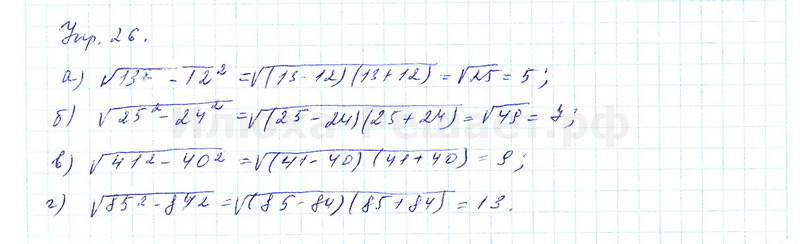 Упр. 26.
а) √13² - 12² = √(13-12)(13+12) = √25 = 5;
б) √25² - 24² = √(25-24)(25+24) = √49 = 7;
в) √41² - 40² = √(41-40)(41+40) = 9;
г) √85² - 84² = √(85-84)(85+84) = 13.